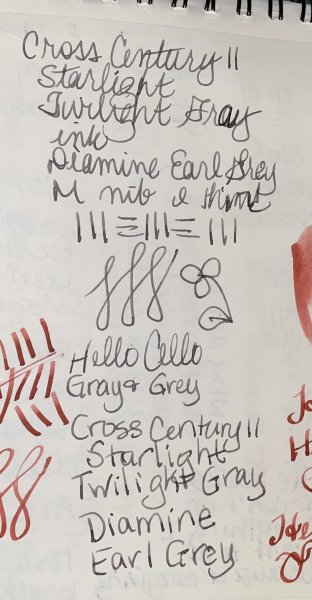 Cross Century II
Starlight
Twilight Gray
ink
Diamine Earl Grey
M nib I think
Hello Cello
Gray & Grey
Cross Century II
Starlight
Twilight Gray
Diamine
Earl Grey